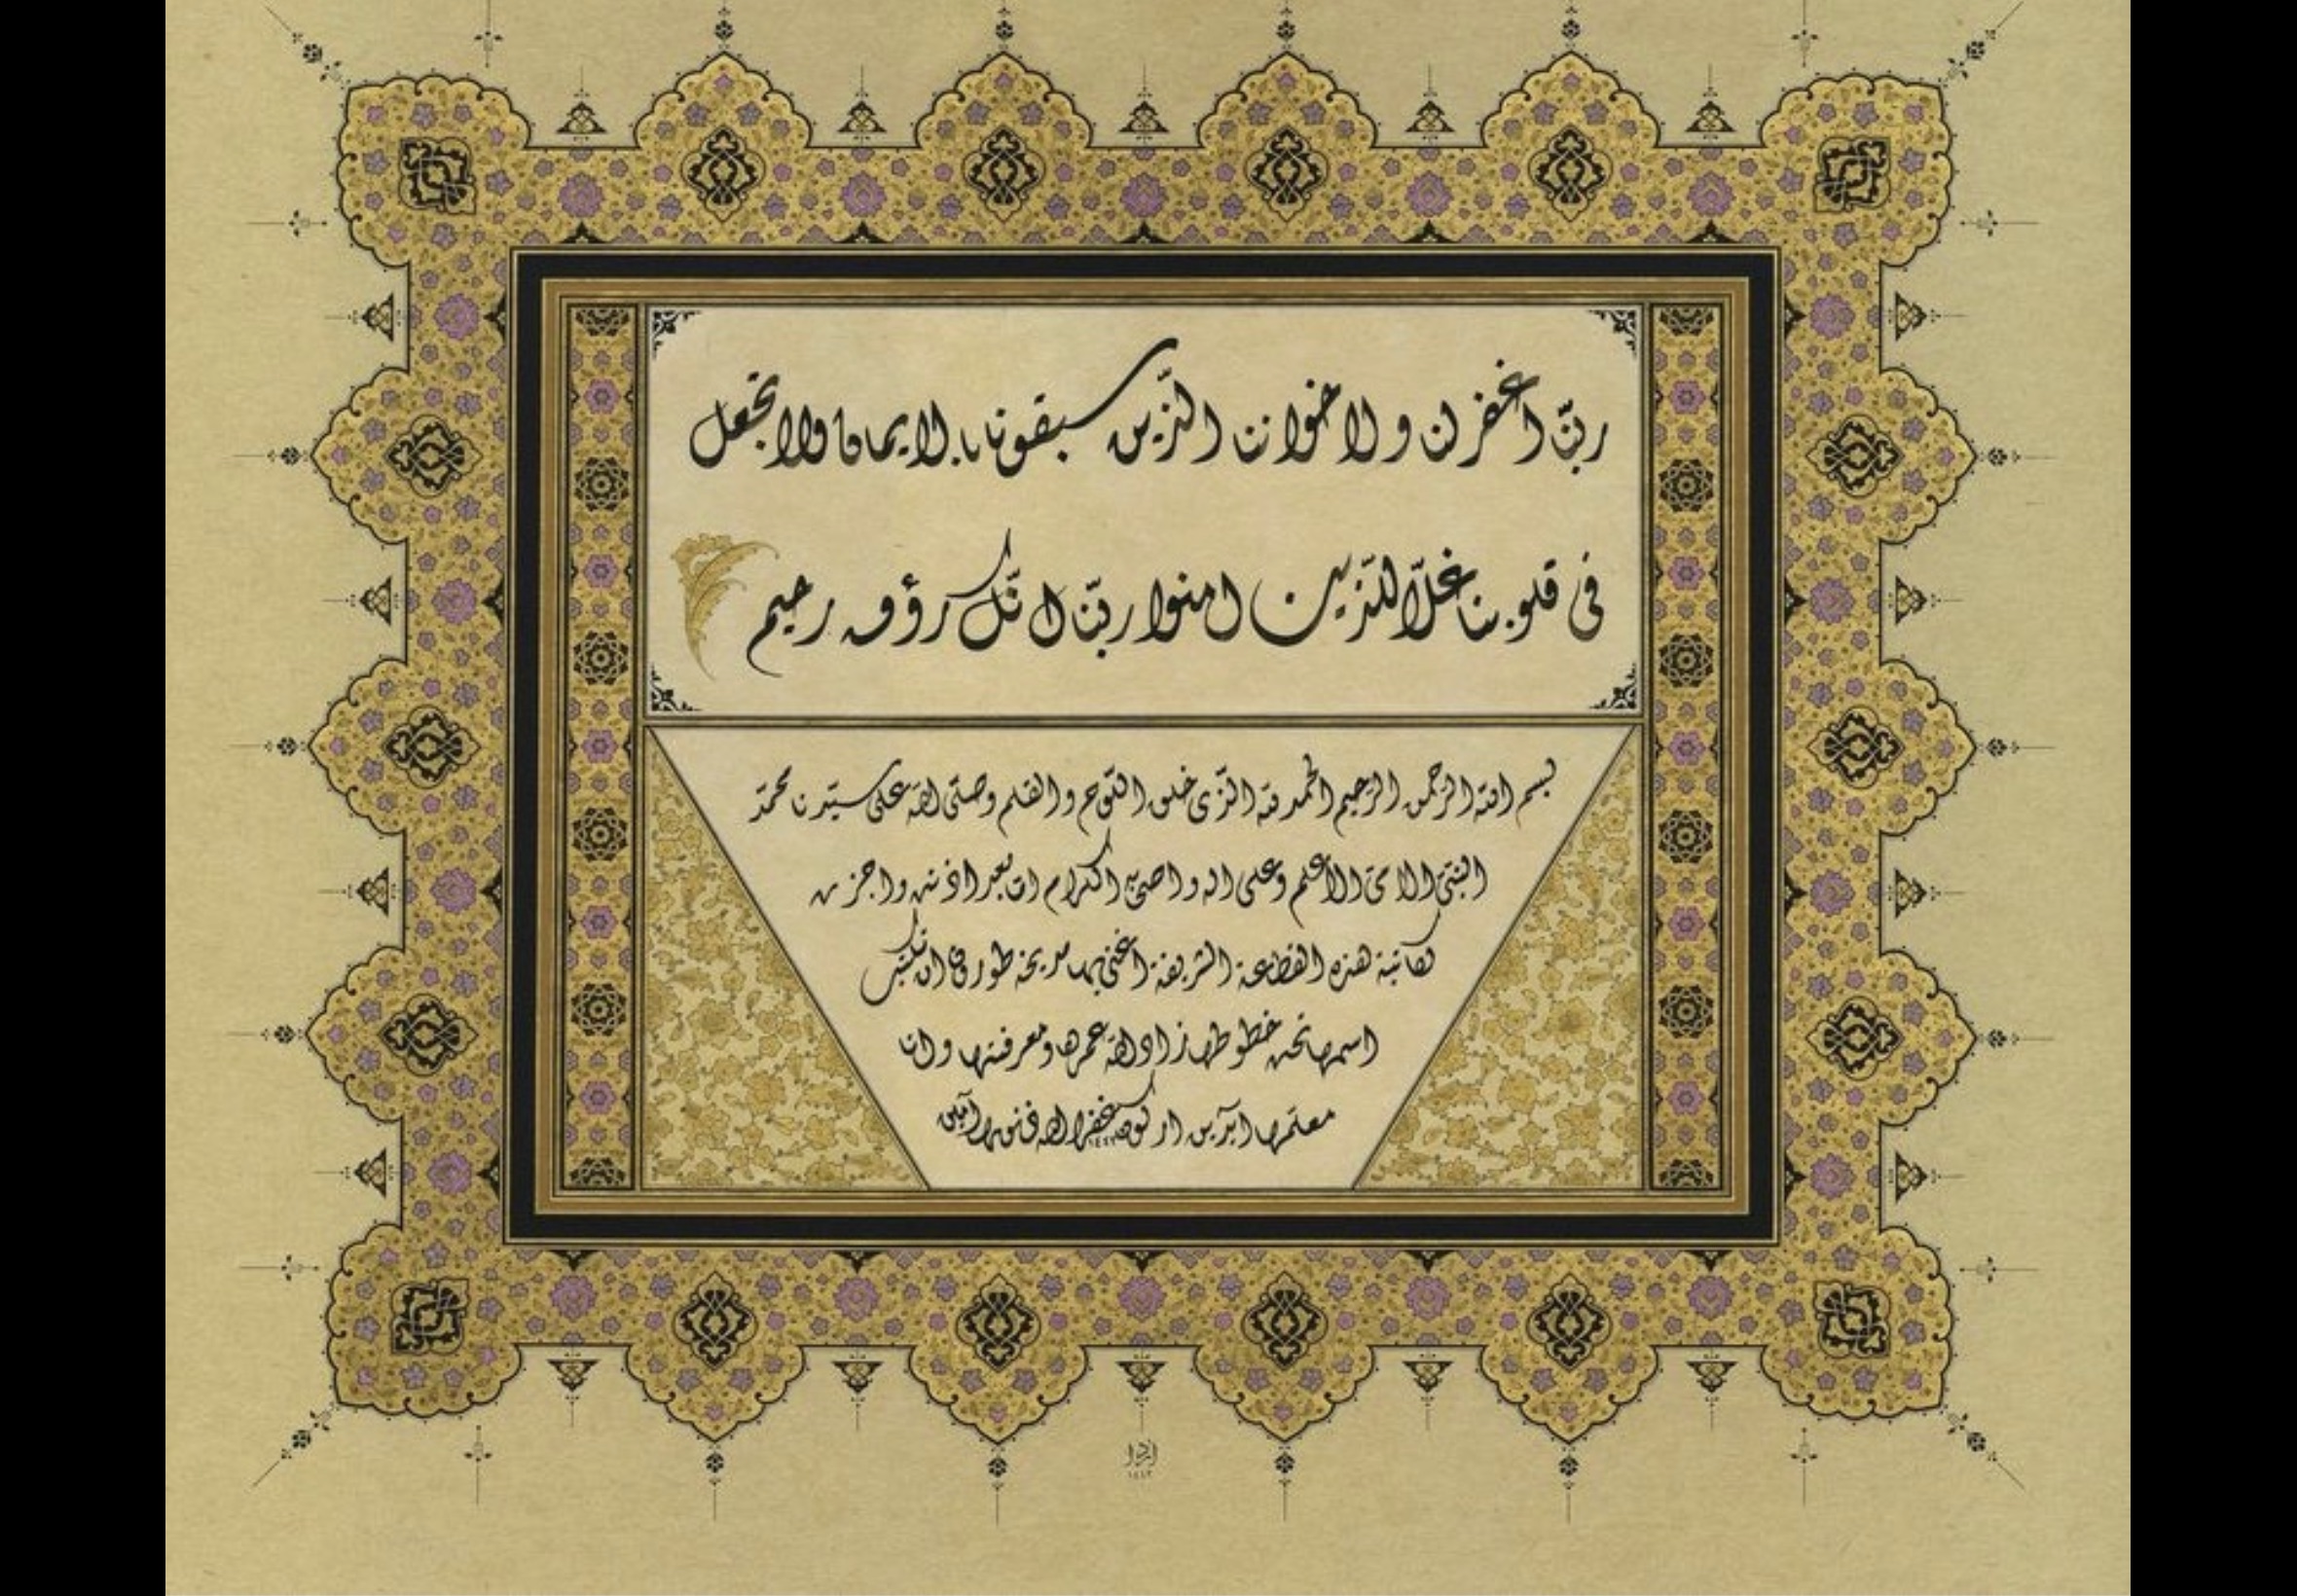 ربّنا اغفر لنا ولاخواننا الّذين سبقونا بالايمان ولا تجعل
فى قلوبنا غلّا للّذين امنوا ربّنا انّك رؤف رحيم
بسم الله الرحمن الرحيم الحمد لله الّذى خلق اللّوح والقلم وصلّى الله على سيّدنا محمّد
النبىّ الامىّ الأعلم وعلى اله واصحابه الكرام اما بعد اذنت واجزت
لكاتبة هذه القطعة الشريفة اعنى بها مديحه طورقان ان تكتب
اسمها تحت خطوطها زاد الله عمرها ومعرفتها وانا
معلّمها آيدين ار غفر الله ذنوبهما آمين